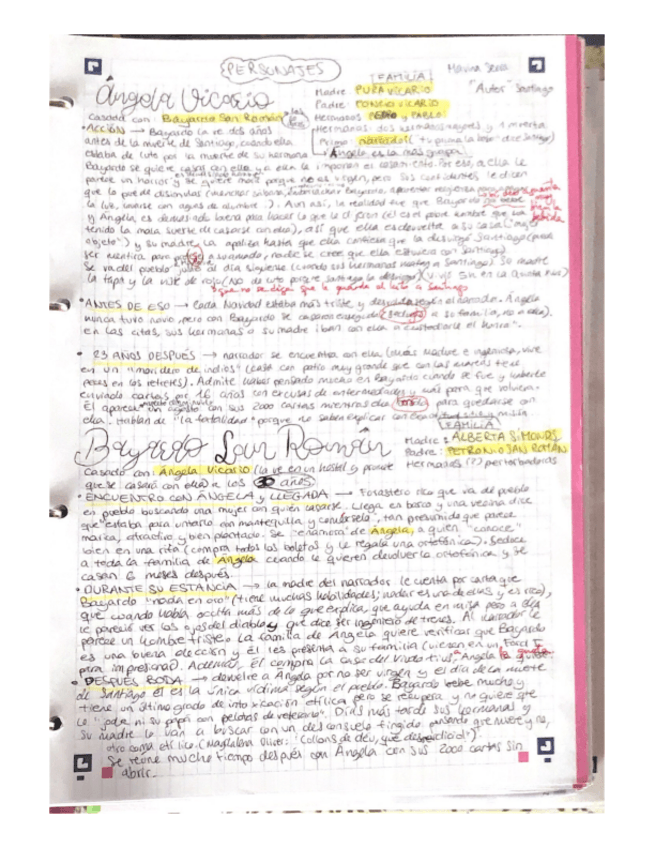 PERSONAJES
Marina Serra
Ángela Vicario
FAMILIA
Madre: PURA VICARIO
Padre: PONCIO VICARIO
"Autor" Santiago
Casada con: Bayardo San Román
Hermanos: PEDRO y PABLO
Hermanas: dos hermanas mayores y 1 muerta
• ACCIÓN → Bayardo la ve dos años
antes de la muerte de Santiago, cuando ella
Primo: narrador
estaba de luto por la muerte de su hermana
Ángela es la más
Bayardo se quiere casar con ella y a ella le imponen el casarse. Por eso, a ella le
parece un horror y se quiere morir porque no es virgen, pero sus confidentes le dicen
que lo puede disimular
la luz, lavarse con aguas de alumbre..). Aun así, la realidad es que Bayardo
y Ángela, es demasiado buena para hacer lo que le dijeron (él es el pobre hombre que ha
tenido la mala suerte de casarse con ella), así que ella es devuelta a su casa
objeto") y su madre la apaliza hasta que ella confiesa que la desvirgó Santiago
ser mentira para
nadie se cree que ella estuviera con Santiago)
Se va del pueblo justo al día siguiente (cuando sus hermanos matan a Santiago). Su madre
la tapa y la viste de rojo (No de luto porque Santiago la desvirgó)
que no se diga que le guarda el luto a Santiago
• ANTES DE ESO → Cada Navidad estaba más triste y
según el narrador. Ángela
nunca tuvo novio, pero con Bayardo se casaron enseguida (seduce a su familia, no a ella).
en las citas, sus hermanas o su madre iban con ella a custodiarle el honor".
• 23 AÑOS DESPUÉS → narrador se encuentra con ella (más madura e ingeniosa, vive
en un "moridero de indios" (casa con patio muy grande que con las mareas tiene
peces en los retretes). Admite haber pensado mucho en Bayardo cuando se fue y haberle
enviado cartas por 16 años con excusas de enfermedades y más para que volviera.
Él aparece un agosto con sus 2000 cartas mientras ella borda para quedarse con
ella. Hablan de "la fatalidad" porque no saben explicar con exactitud su misión.
Bayardo San Román
FAMILIA
Madre: ALBERTA SIMONDS
Padre: PETRONIO SAN ROMÁN
Casado con: Ángela Vicario (la ve en un hostal y promete
Hermanas (?) perturbadoras
que se casará con ella) a los 30 años
• ENCUENTRO CON ÁNGELA y LLEGADA → Forastero rico que va del pueblo
en pueblo buscando una mujer con quien casarse. Llega en barco y una vecina dice
que "estaba para untarlo con mantequilla y comérselo", tan presumido que parece
marica, atractivo y bien plantado. Se "enamora" de Ángela, a quien "conoce"
bien en una rifa (compra todos los boletos y le regala una ortofónica). Seduce
a toda la familia de Ángela cuando le quieren devolver la ortofónica y se
casan 6 meses después.
• DURANTE SU ESTANCIA → la madre del narrador le cuenta por carta que
Bayardo "nada en oro" (tiene muchas habilidades; nadar es una de ellas y es rico),
que cuando habla oculta más de lo que explica, que ayuda en misa pero a ella
le pareció ver los ojos del diablo y que dice ser ingeniero de trenes. Al narrador le
parece un hombre triste. La familia de Ángela quiere verificar que Bayardo
es una buena elección y él les presenta a su familia (vienen en un Ford T
para impresionar). Además, él compra la casa del viudo Xius, Ángela
• DESPUÉS BODA → devuelve a Ángela por no ser virgen y el día de la muerte
de Santiago él es la única víctima según el pueblo. Bayardo bebe mucho y
tiene un último grado de intoxicación etílica pero se recupera y no quiere que
le "jodan ni su papá con pelotas de veterano". Días más tarde sus hermanas y
su madre lo van a buscar con un desconsuelo fingido pensando que muere y no,
otro coma etílico. (Magdalena Oliver: "Collons de déu, qué desperdicio!")
Se reúne mucho tiempo después con Ángela con sus 2000 cartas sin
abrir.